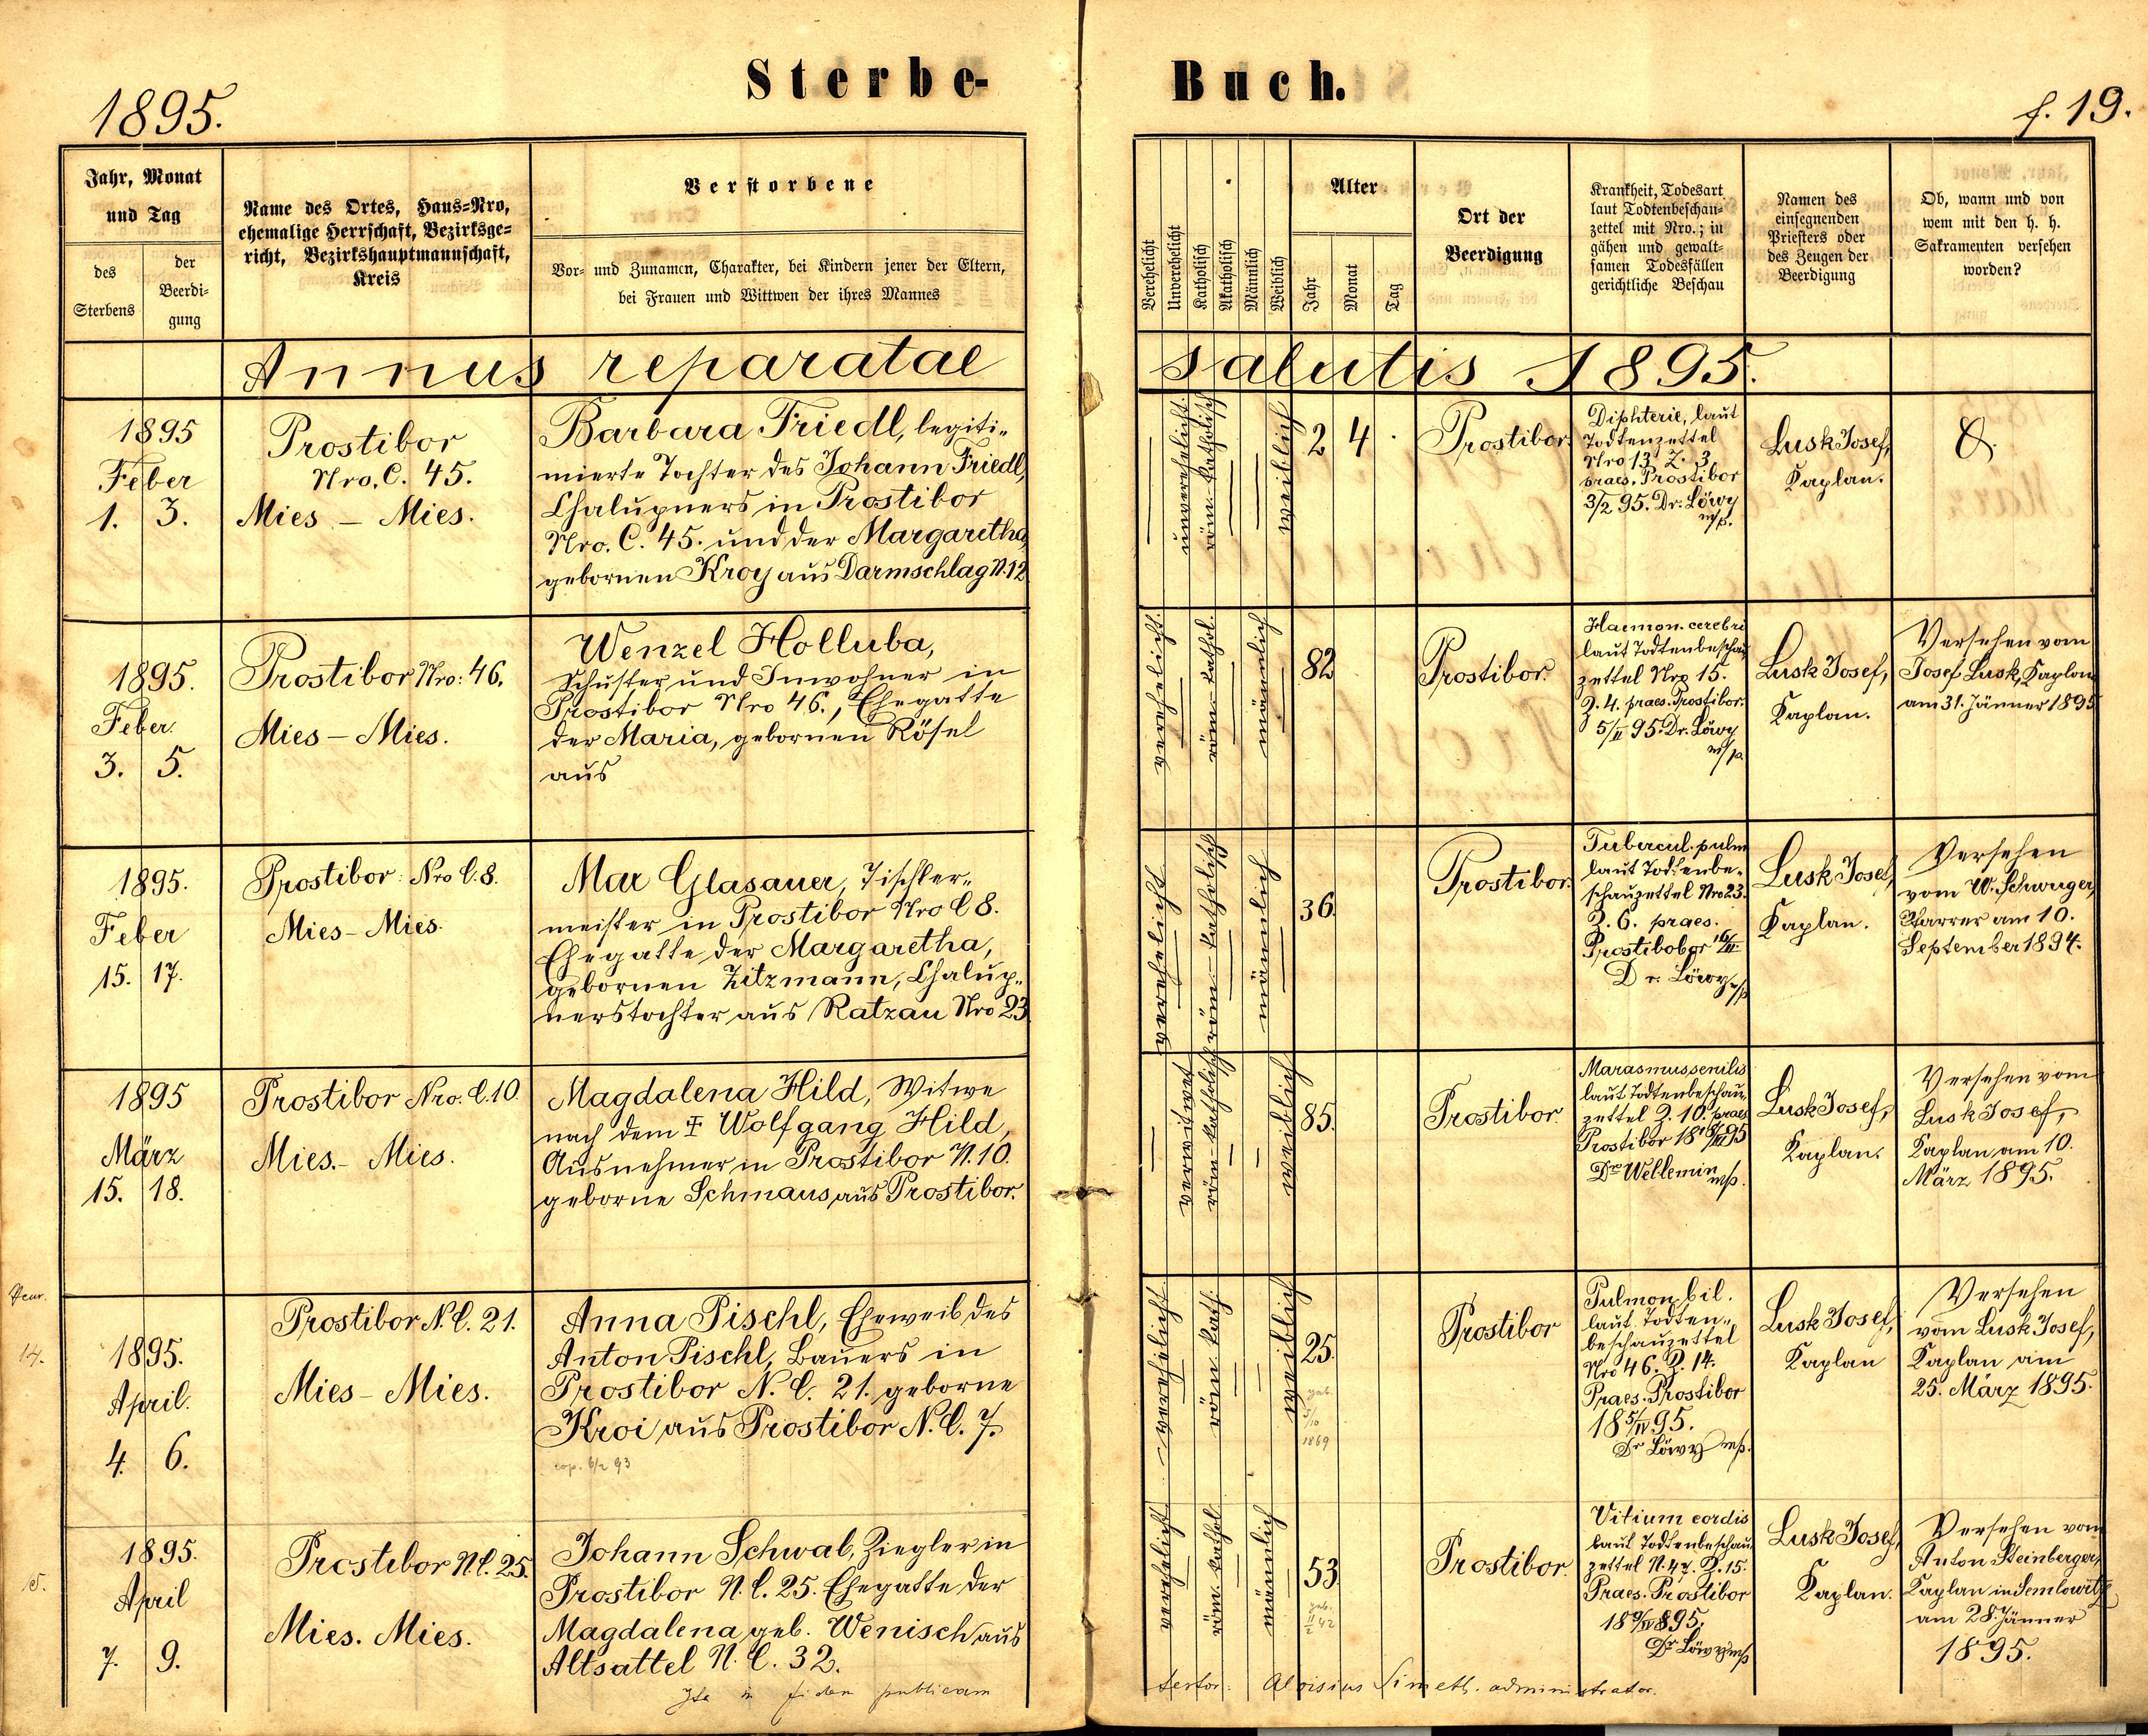 1895.
Sterbe-
Buch.
f. 19.
Jahr, Monat
und Tag
des
Sterbens
der
Beerdi-
gung
Name des Ortes, Haus-Nro,
ehemalige Herrschaft, Bezirksge-
richt, Bezirkshauptmannschaft,
Kreis
Verstorbene
Vor- und Zunamen, Charakter, bei Kindern jener der Eltern,
bei Frauen und Wittwen der ihres Mannes
Verehelicht
Unverehelicht
Katholisch
Akatholisch
Männlich
Weiblich
Alter
Jahr
Monat
Tag
Ort der
Beerdigung
Krankheit, Todesart
laut Todtenbeschau-
zettel mit Nro.; in
gähen und gewalt-
samen Todesfällen
gerichtliche Beschau
Namen des
einsegnenden
Priesters oder
des Zeugen der
Beerdigung
Ob, wann und von
wem mit den h. h.
Sakramenten versehen
worden?
Annus reparatae salutis 1895.
1895
Feber
1. 3.
Prostibor
Nro. C. 45.
Mies – Mies.
Barbara Friedl, legiti-
mierte Tochter des Johann Friedl,
Chalupners in Prostibor
Nro. C. 45. und der Margaretha,
gebornen Kroy aus Darmschlag N. 12
unverehelicht.
röm. katholisch
weiblich
2 4
Prostibor.
Diphterie, laut
Todtenzettel
Nro 13 Z. 3.
praes. Prostibor
3/2 95. Dr. Löwy
m/p.
Lusk Josef,
Kaplan.
1895.
Feber
3. 5.
Prostibor Nro: 46.
Mies – Mies.
Wenzel Holluba,
Schuster und Inwohner in
Prostibor Nro 46., Ehegatte
der Maria, gebornen Rösel
aus
verehelicht.
röm. kathol.
männlich
82
Prostibor.
Haemon. cerebri
laut Todtenbeschau
zettel Nro 15.
Z. 4. praes. Prostibor.
5/II 95. Dr. Löwy
m/p.
Lusk Josef,
Kaplan.
Versehen vom
Josef Lusk, Kaplan
am 31. Jänner 1895
1895.
Feber
15. 17.
Prostibor: Nro C. 8.
Mies – Mies.
Max Glasauer, Tischler-
meister in Prostibor Nro C 8.
Ehegatte der Margaretha,
gebornen Zitzmann, Chalup-
nerstochter aus Ratzau Nro 23.
verehelicht
röm. katholisch
männlich
36.
Prostibor.
Tubercul. pulm
laut Todtenbe-
schauzettel Nro 23.
Z. 6. praes.
Prostibobor 16/II.
Dr. Löwy m/p
Lusk Josef,
Kaplan.
Versehen
vom W. Schwuger,
Pfarrer am 10.
September 1894.
1895
März
15. 18.
Prostibor Nro. C. 10.
Mies. – Mies.
Magdalena Hild, Witwe
nach dem ‡ Wolfgang Hild,
Ausnehmer in Prostibor N. 10.
geborne Schmaus aus Prostibor.
verwitwet
röm. katholisch
weiblich
85.
Prostibor.
Marasmus senilis
laut Todtenbeschau-
zettel Z. 10. praes
Prostibor 18 /III 95
Dr Wellemin m/p.
Lusk Josef,
Kaplan.
Versehen vom
Lusk Josef,
Kaplan am 10.
März 1895.
14.
1895.
April.
4. 6.
Prostibor N. C. 21.
Mies – Mies.
Anna Pischl, Eheweib des
Anton Pischl, Bauers in
Prostibor N. C. 21. geborne
Kroi aus Prostibor N. C. 7.
cop. 6/2 93
verehelicht
röm. kath.
weiblich
25.
geb.
5/10
1869
Prostibor
Pulmon. bil.
laut Todten-
beschauzettel
Nro 46. Z. 14.
Praes. Prostibor
18 5/IV 95.
Dr Löwy m/p.
Lusk Josef,
Kaplan
Versehen
vom Lusk Josef,
Kaplan am
25. März 1895.
15.
1895.
April
7. 9.
Prostibor N. C. 25.
Mies. Mies.
Johann Schwab, Ziegler in
Prostibor N. C. 25. Ehegatte der
Magdalena geb. Wenisch aus
Altsattel N. C. 32.
verehelicht
röm. kathol.
männlich
53.
geb.
11/2 42
Prostibor.
Vitium cordis
laut Todtenbeschau
zettel N. 47. Z. 15.
Praes. Prostibor
18 9/IV 895.
Dr Löwy m/p
Lusk Josef,
Kaplan.
Versehen von
Anton Steinberger,
Kaplan in Semlowitz
am 28. Jänner
1895.
in fidem publicam
testor: Aloisius Simeth. administrator.